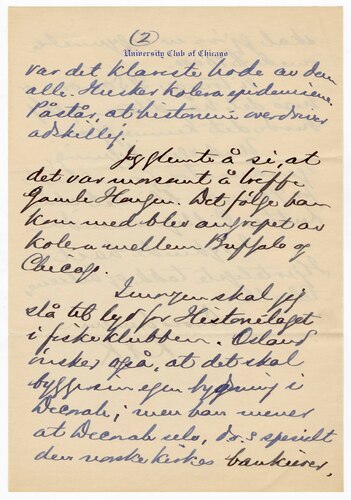 (2)
University Club of Chicago
var det klareste hode av dem
alle. Husker koleraepidemiene.
Påstår, at historien overdriver
adskillig.
Jeg glemte å si, at
det var morsomt å treffe
gamle Haugen. Det følge han
kom med blev angrepet av
kolera mellem Buffalo og
Chicago.
I morgen skal jeg
slå til lyd for Historielaget
i fiskeklubben. Osland
ønsker også, at det skal
bygges sin egen bygning i
Decorah; men han mener
at Decorah selv, d.v.s. specielt
den norske kirkes bankierer,